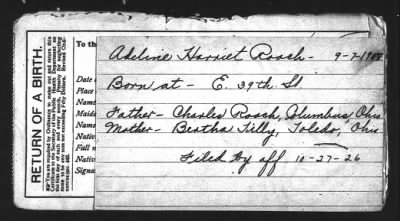 RETURN OF A BIRTH.
To th
Date
Place
Name
Maide
Name
Nativ
Full n
Nativ
Signa
Adeline Harriet Roach - 9-7-19
Born at - E. 39th St.
Father - Charles Roach, Columbus, Ohio
Mother - Beatha Tilly, Toledo, Ohio
Filed by aff 10-27-26